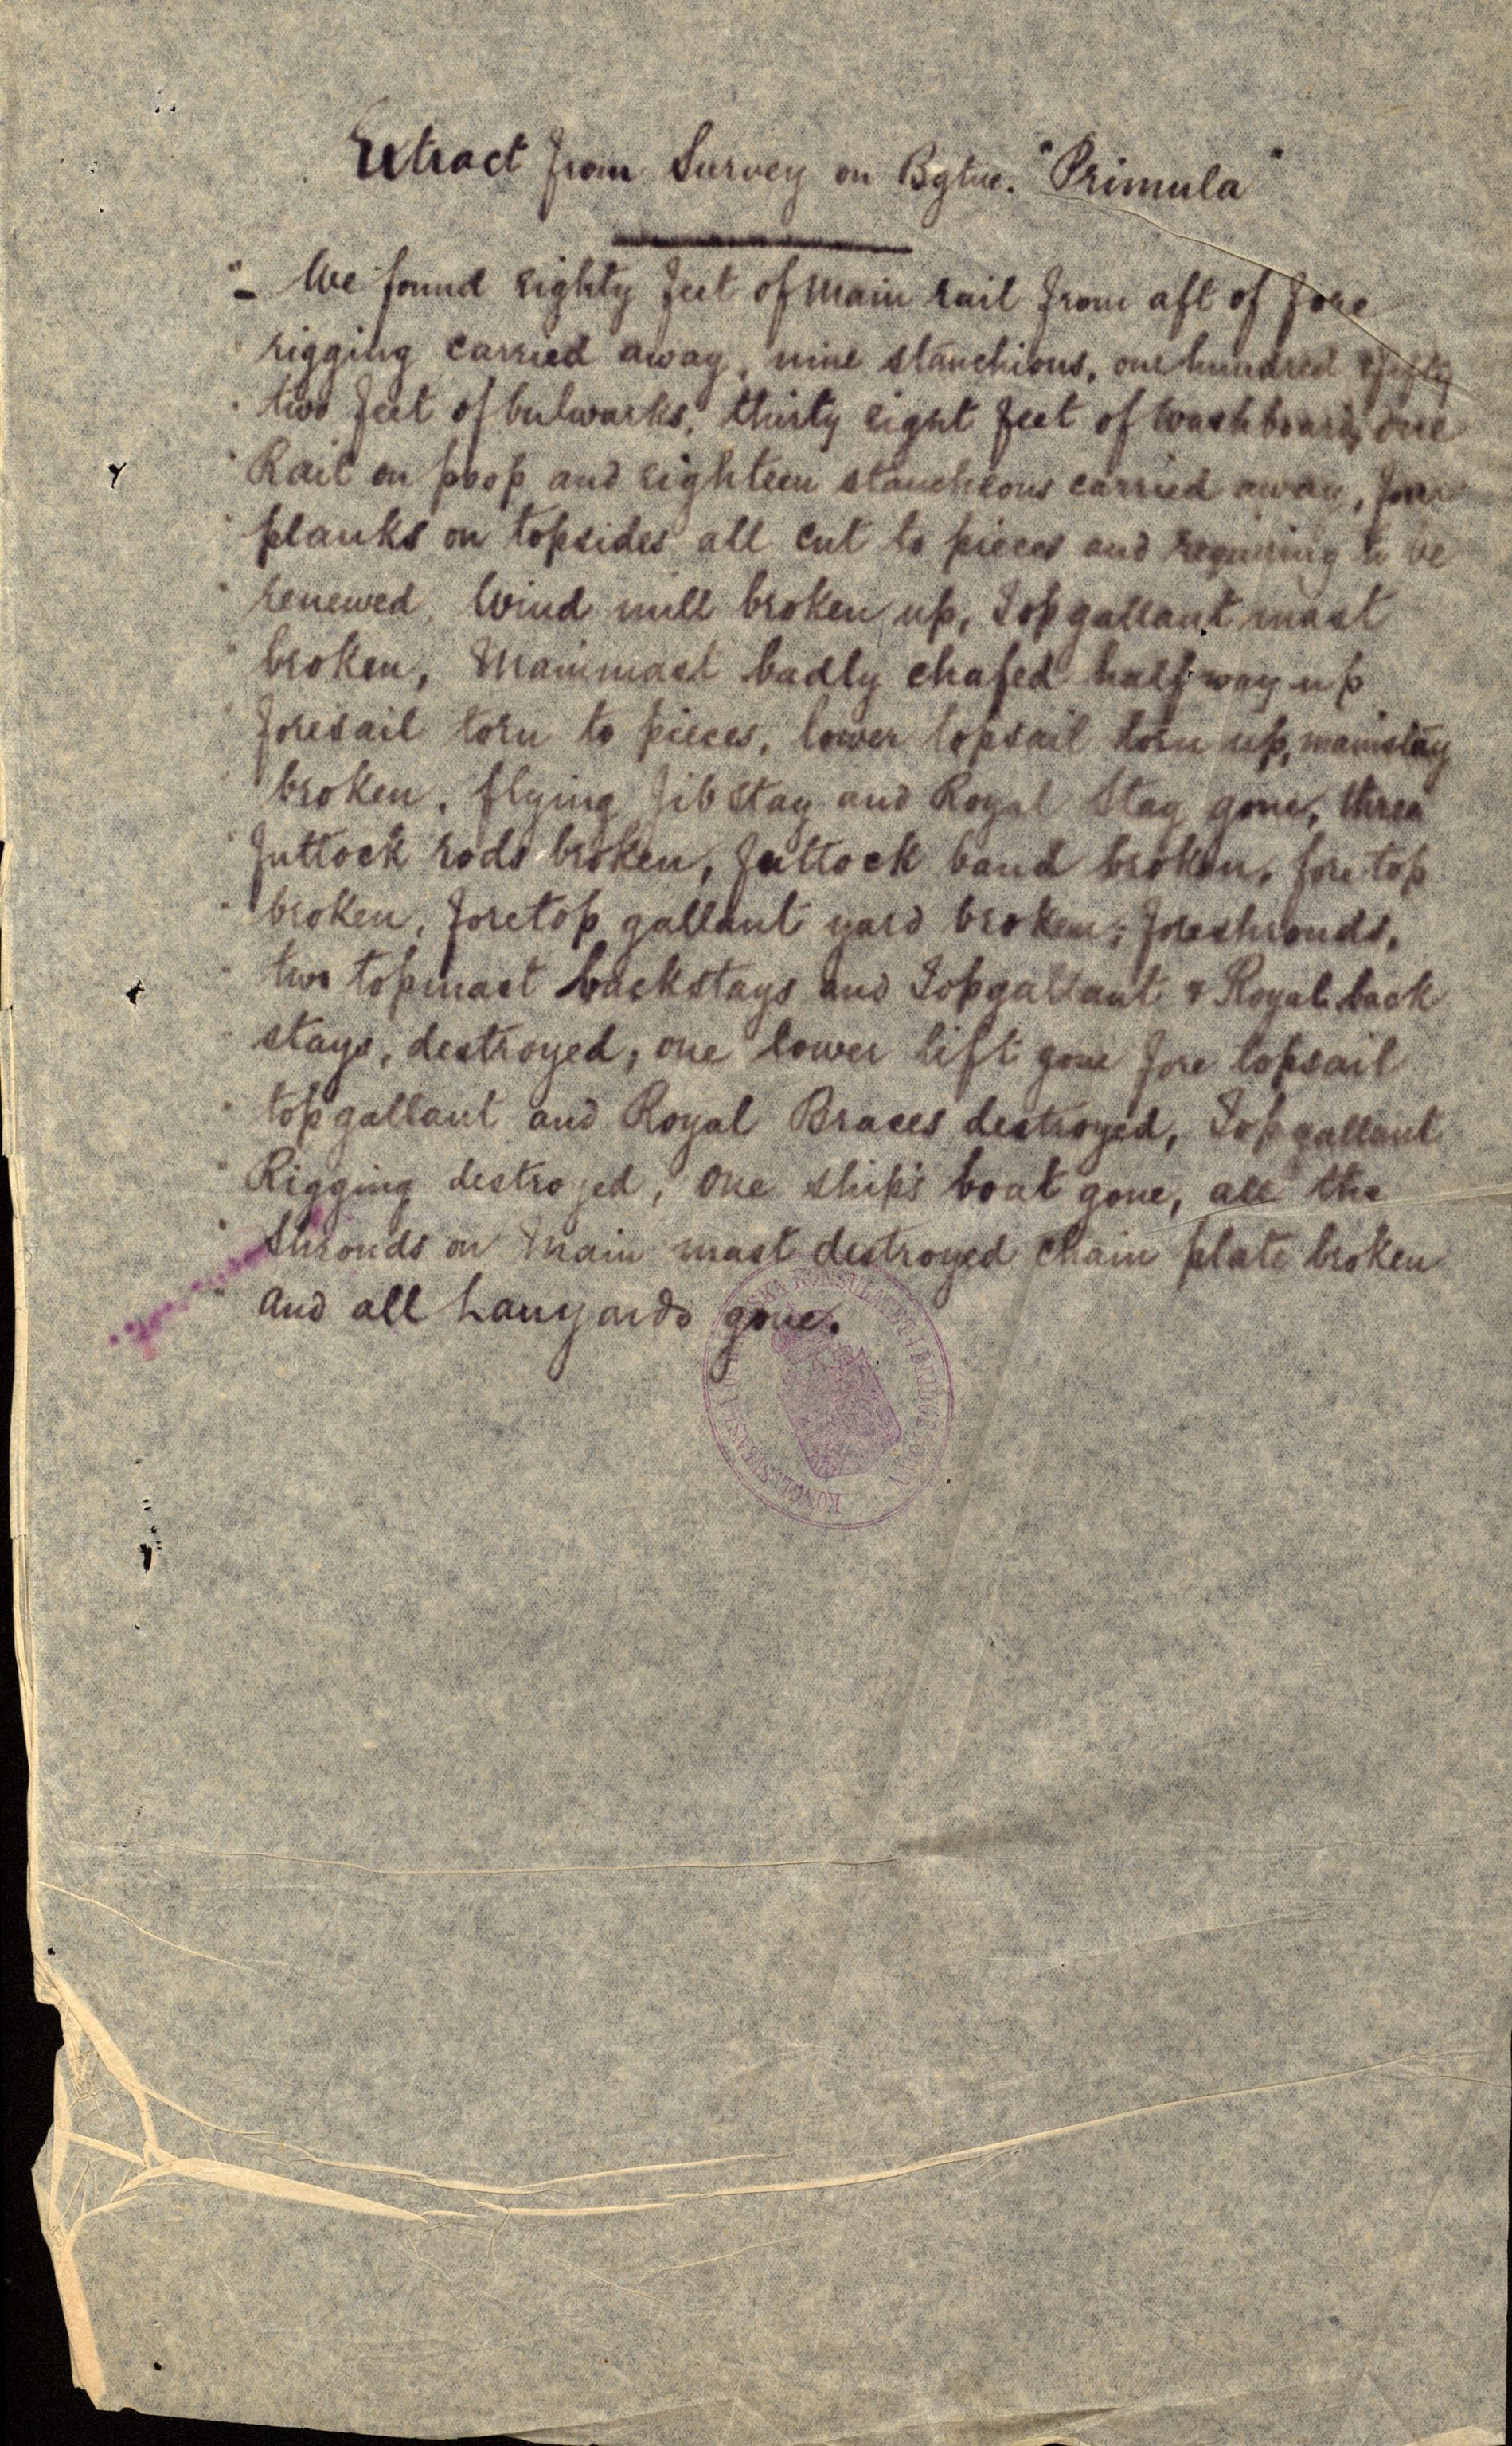 Extract from Survey on Bgtne. "Primula"
"- We found eighty feet of Main rail from aft of fore
" rigging carried away, nine stanchions, one hundred & fifty
" two feet of bulwarks, thirty eight feet of washboard, one
" Rail on poop and eighteen stancheons carried away, four
" planks on topsides all cut to pieces and requiring to be
" renewed, Wind mill broken up, Topgallant mast
" broken, Mainmast badly chafed half way up
" foresail torn to pieces, lower topsail torn up, mainstay
" broken, flying Jib Stay and Royal Stay gone, three
" futtock rods broken, futtock band broken, fore top
" broken, foretop gallant yard broken; foreshrouds,
" two topmast backstays and Topgallant & Royal back
" stays, destroyed, one lower lift gone fore topsail
" topgallant and Royal Braces destroyed, Topgallant
" Rigging destroyed, one ship's boat gone, all the
" Shrouds on Main mast destroyed chain plate broken
" and all Lanyards gone.